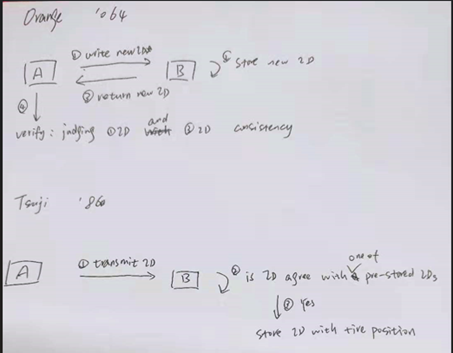 Orange '064
① write new ID
A
B
② store new ID
③ return new ID
④
verify: judging ① ID and ③ ID consistency
Tsuji '860
A
① transmit ID
B
② is ID agree with one of pre-stored IDs
③ Yes
store ID with tire position